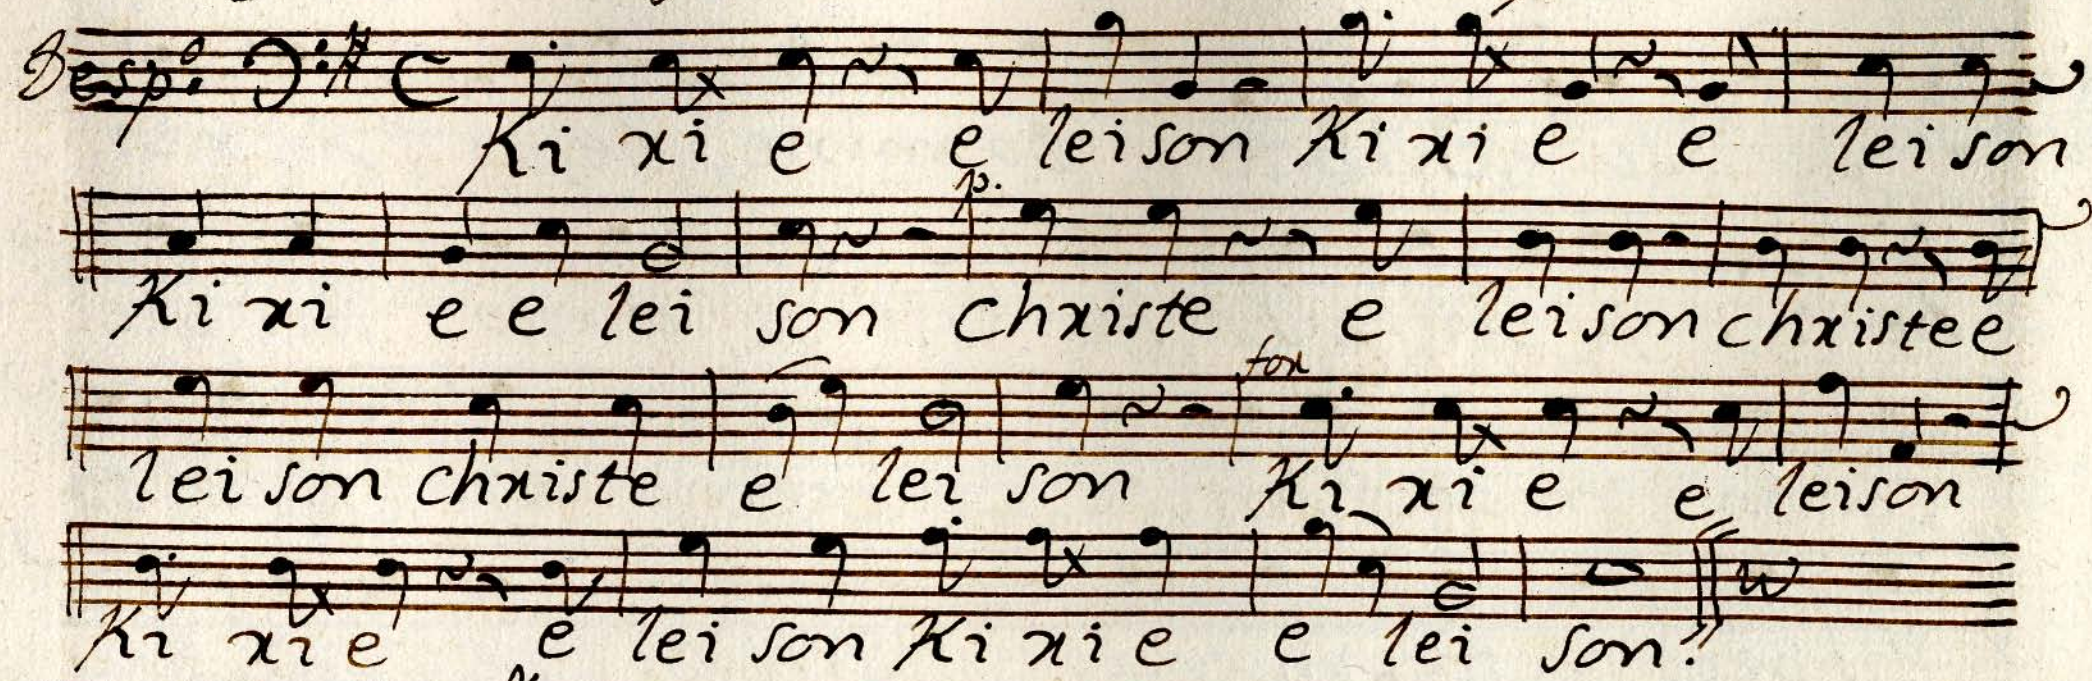 Besp:
Kirie eleison Kirie eleison
p.
Kirie eleison christe eleison christe e
for
leison christe eleison Kirie eleison
Kirie eleison Kirie eleison.